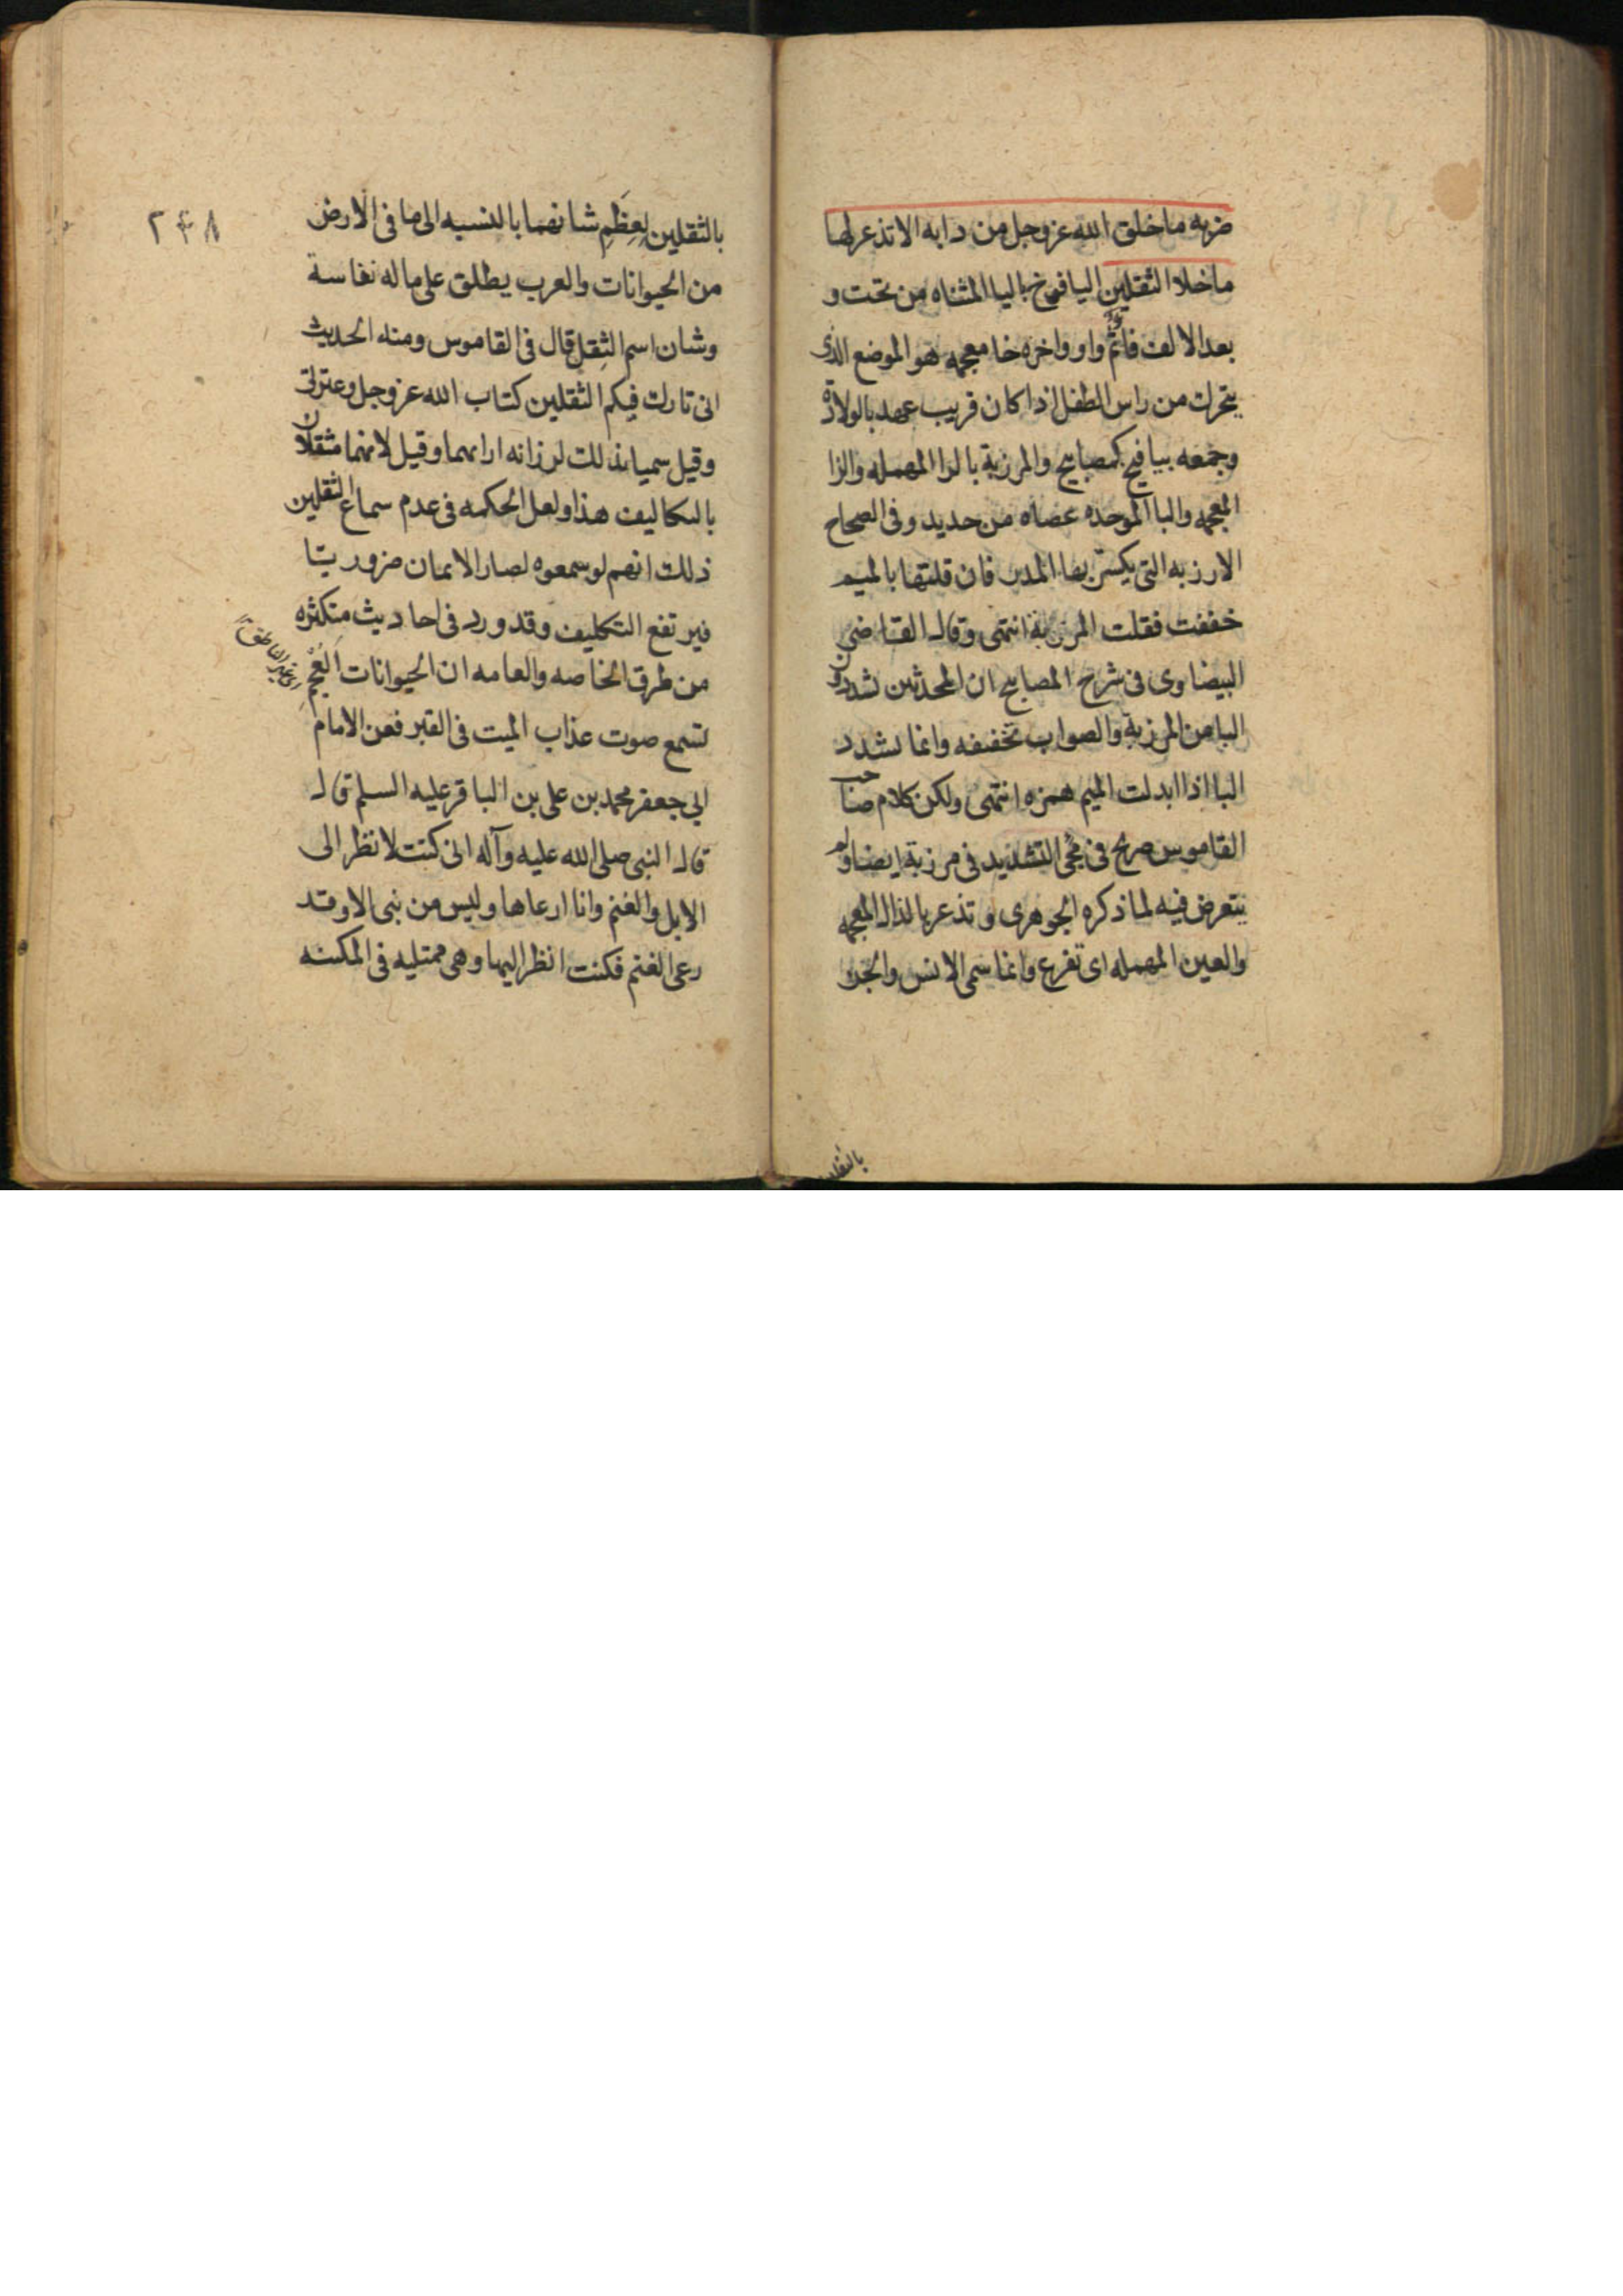 ضربه ما خلق الله عز وجل من دابه الا تذعر لها
ما خلا الثقلين اليافوخ باليا المثناه من تحت و
بعد الالف فائم واو واخره خا معجمه هو الموضع الذى
يتحرك من راس الطفل اذا كان قريب عهد بالولادة
وجمعه يبافيخ كمصابيح والمرزبة بالرا المهمله والزا
المعجمه والبا الموحده عصاه من حديد وفى الصحاح
الارزبه التى يكسر بها المدر فان قلتها بالميم
خففت فقلت المرزبة انتهى وقال القاضى
البيضاوى فى شرح المصابيح ان المحدثين يشددون
البا من المرزبة والصواب تخفيفه وانما يشدد
البا اذا ابدلت الميم همزه انتهى ولكن كلام صاحب
القاموس صريح فى مجى التشديد فى مرزبة ايضا ولم
يتعرض فيه لما ذكره الجوهرى وتذعر بالذال المعجمه
والعين المهمله اى تفزع وانما سمى الانس والجن
بالثقلين
٢۴٨
بالثقلين لعِظَمِ شانهما بالنسبه الى ما فى الارض
من الحيوانات والعرب يطلق على ما له نفاسة
وشان اسم الثِقل قال فى القاموس ومنه الحديث
انى تارك فيكم الثقلين كتاب الله عز وجل وعترتى
وقيل سميا بذلك لرزانه ارائهما وقيل لانهما مثقلان
بالتكاليف هذا ولعل الحكمه فى عدم سماع الثقلين
ذلك انهم لو سمعوه لصار الايمان ضروريًا
فيرتفع التكليف وقد ورد فى احاديث متكثره
من طرق الخاصه والعامه ان الحيوانات العُجم
تسمع صوت عذاب الميت فى القبر فعن الامام
ابي جعفر محمد بن على بن الباقر عليه السلم قال
قال النبى صلى الله عليه وآله انى كنت لانظر الى
الابل والغنم وانا ارعاها وليس من نبى الا وقد
رعى الغنم فكنت انظر اليها وهى ممتليه فى المكنه